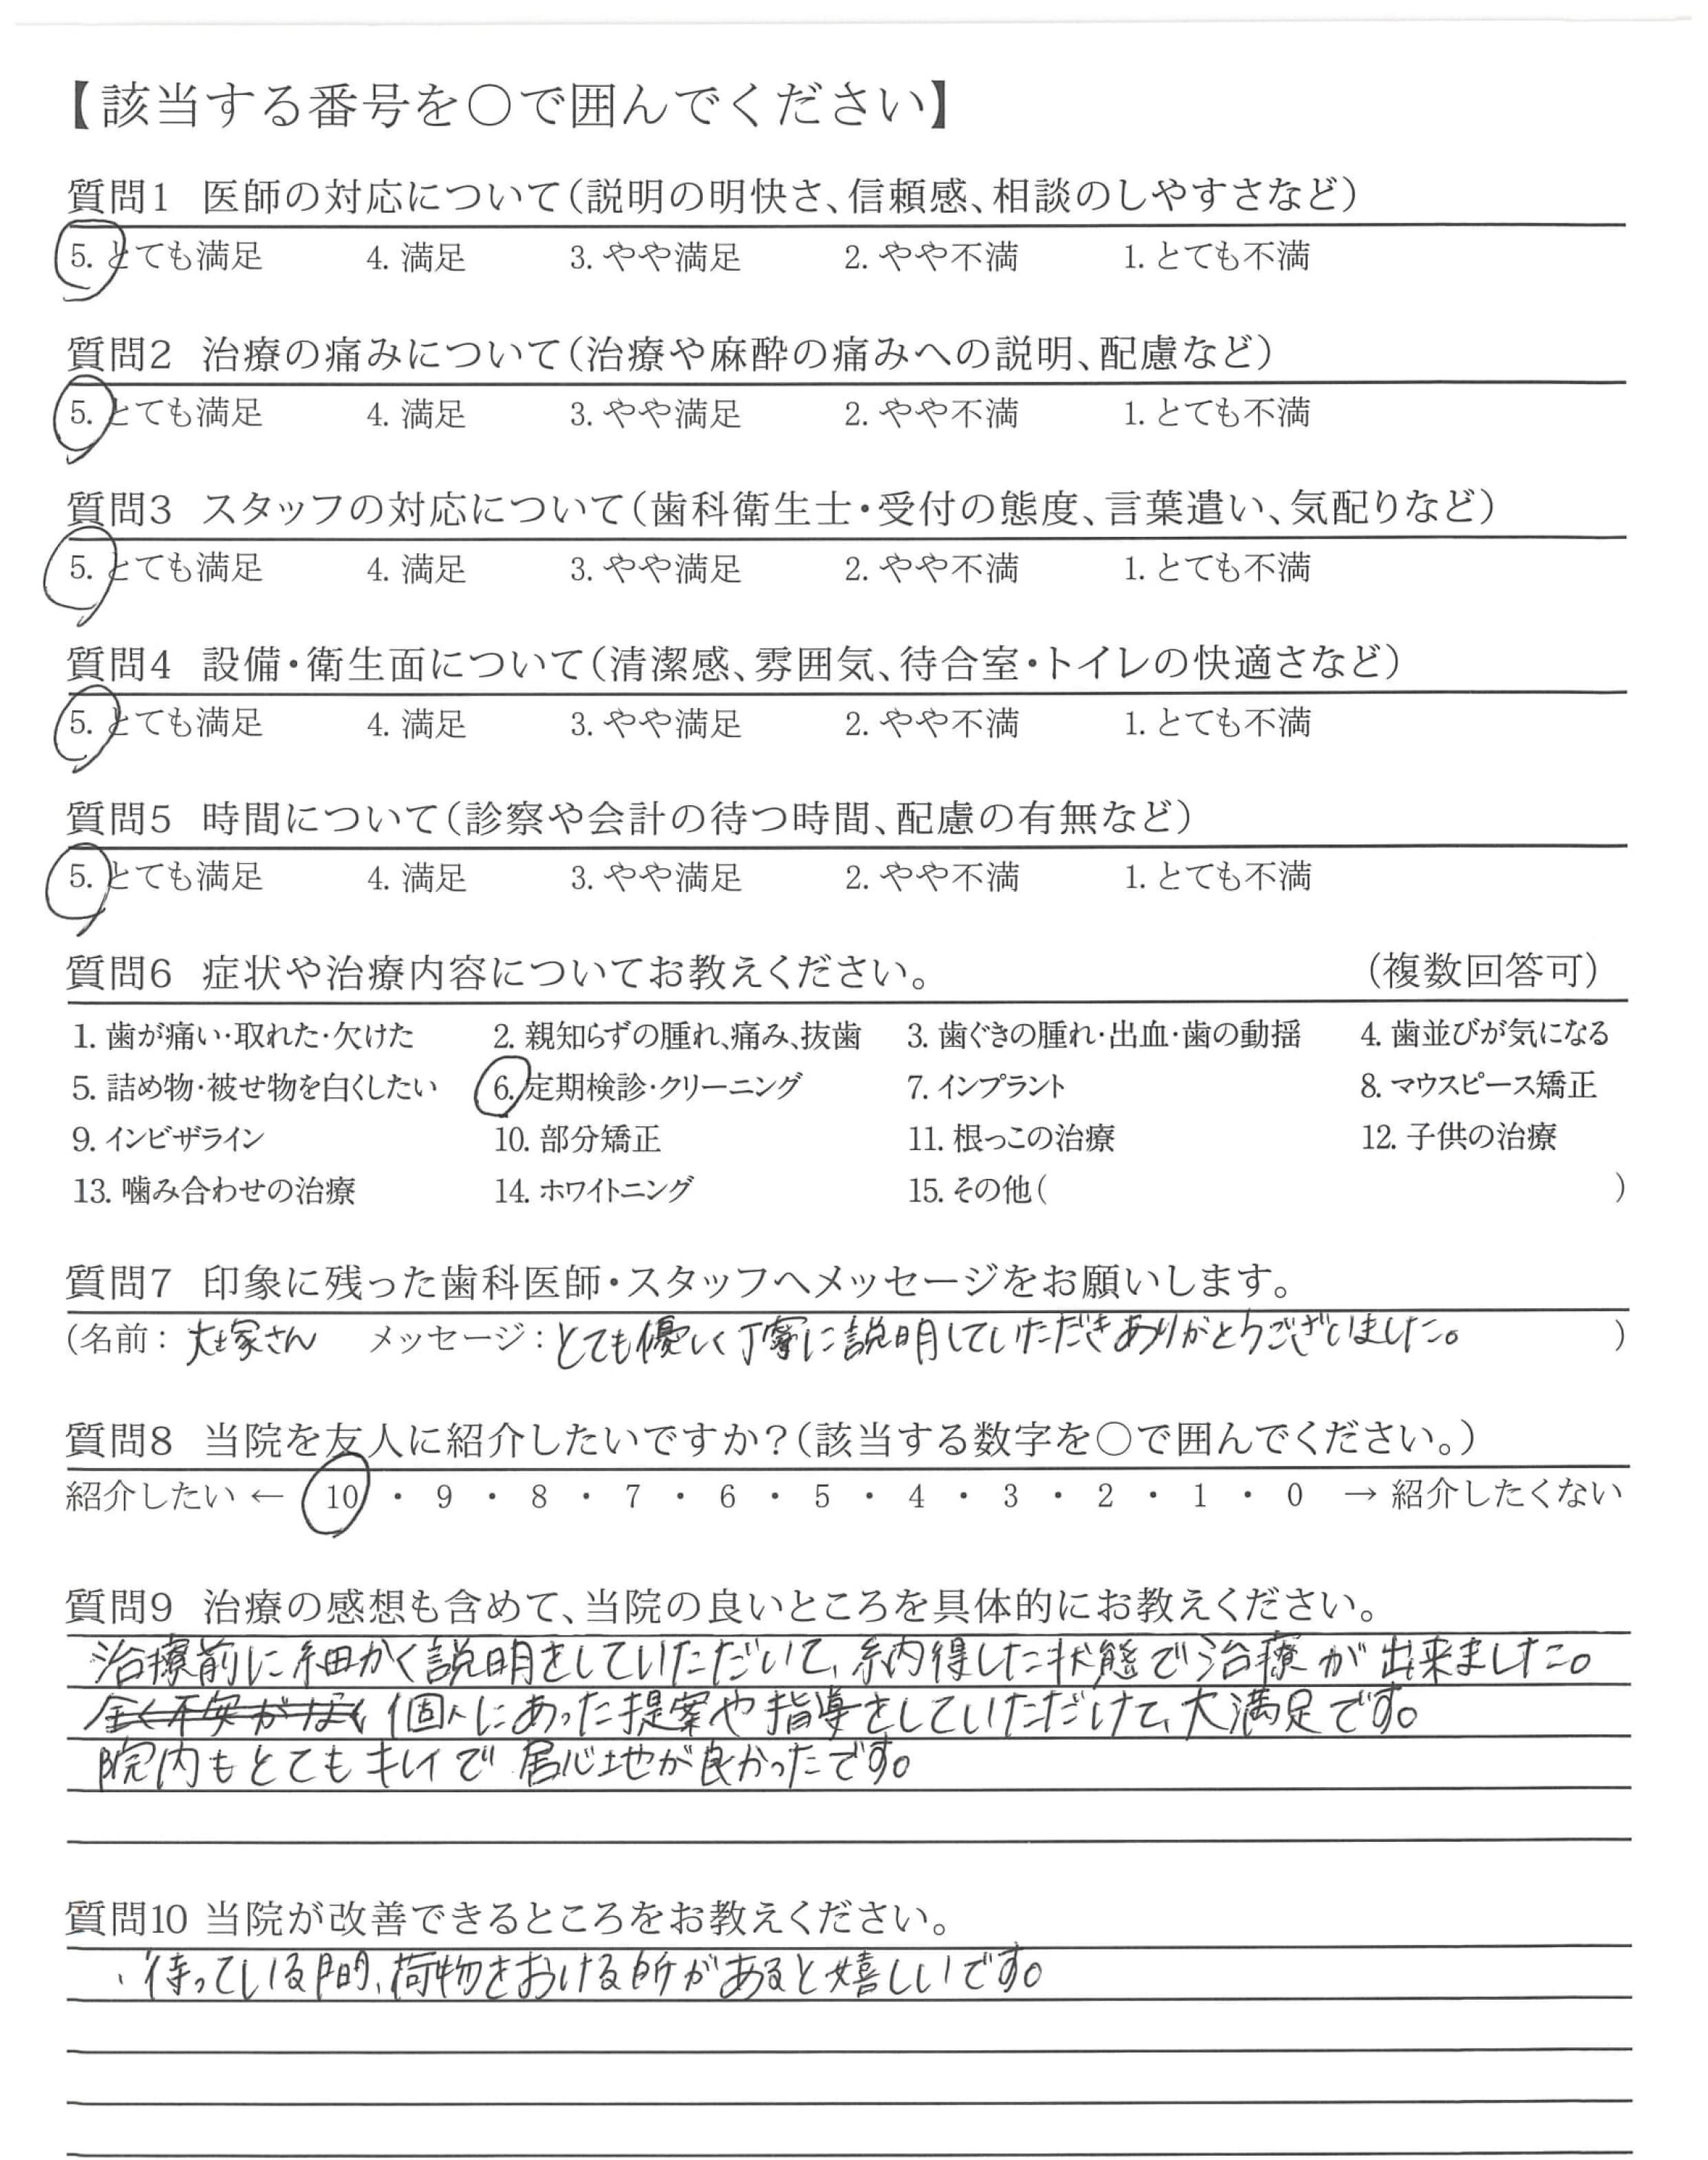 【該当する番号を○で囲んでください】
質問1 医師の対応について(説明の明快さ、信頼感、相談のしやすさなど)
5. とても満足 4. 満足 3. やや満足 2. やや不満 1. とても不満
質問2 治療の痛みについて(治療や麻酔の痛みへの説明、配慮など)
5. とても満足 4. 満足 3. やや満足 2. やや不満 1. とても不満
質問3 スタッフの対応について(歯科衛生士・受付の態度、言葉遣い、気配りなど)
5. とても満足 4. 満足 3. やや満足 2. やや不満 1. とても不満
質問4 設備・衛生面について(清潔感、雰囲気、待合室・トイレの快適さなど)
5. とても満足 4. 満足 3. やや満足 2. やや不満 1. とても不満
質問5 時間について(診察や会計の待つ時間、配慮の有無など)
5. とても満足 4. 満足 3. やや満足 2. やや不満 1. とても不満
質問6 症状や治療内容についてお教えください。 (複数回答可)
1. 歯が痛い・取れた・欠けた 2. 親知らずの腫れ、痛み、抜歯 3. 歯ぐきの腫れ・出血・歯の動揺 4. 歯並びが気になる
5. 詰め物・被せ物を白くしたい 6. 定期検診・クリーニング 7. インプラント 8. マウスピース矯正
9. インビザライン 10. 部分矯正 11. 根っこの治療 12. 子供の治療
13. 噛み合わせの治療 14. ホワイトニング 15. その他( )
質問7 印象に残った歯科医師・スタッフへメッセージをお願いします。
(名前: 大塚さん メッセージ: とても優しく丁寧に説明していただきありがとうございました。 )
質問8 当院を友人に紹介したいですか?(該当する数字を○で囲んでください。)
紹介したい ← 10 ・ 9 ・ 8 ・ 7 ・ 6 ・ 5 ・ 4 ・ 3 ・ 2 ・ 1 ・ 0 → 紹介したくない
質問9 治療の感想も含めて、当院の良いところを具体的にお教えください。
治療前に細かく説明をしていただいて、納得した状態で治療が出来ました。
全く不安がなく 個人にあった提案や指導をしていただけて、大満足です。
院内もとてもキレイで居心地が良かったです。
質問10 当院が改善できるところをお教えください。
・待っている間、荷物をおける所があると嬉しいです。